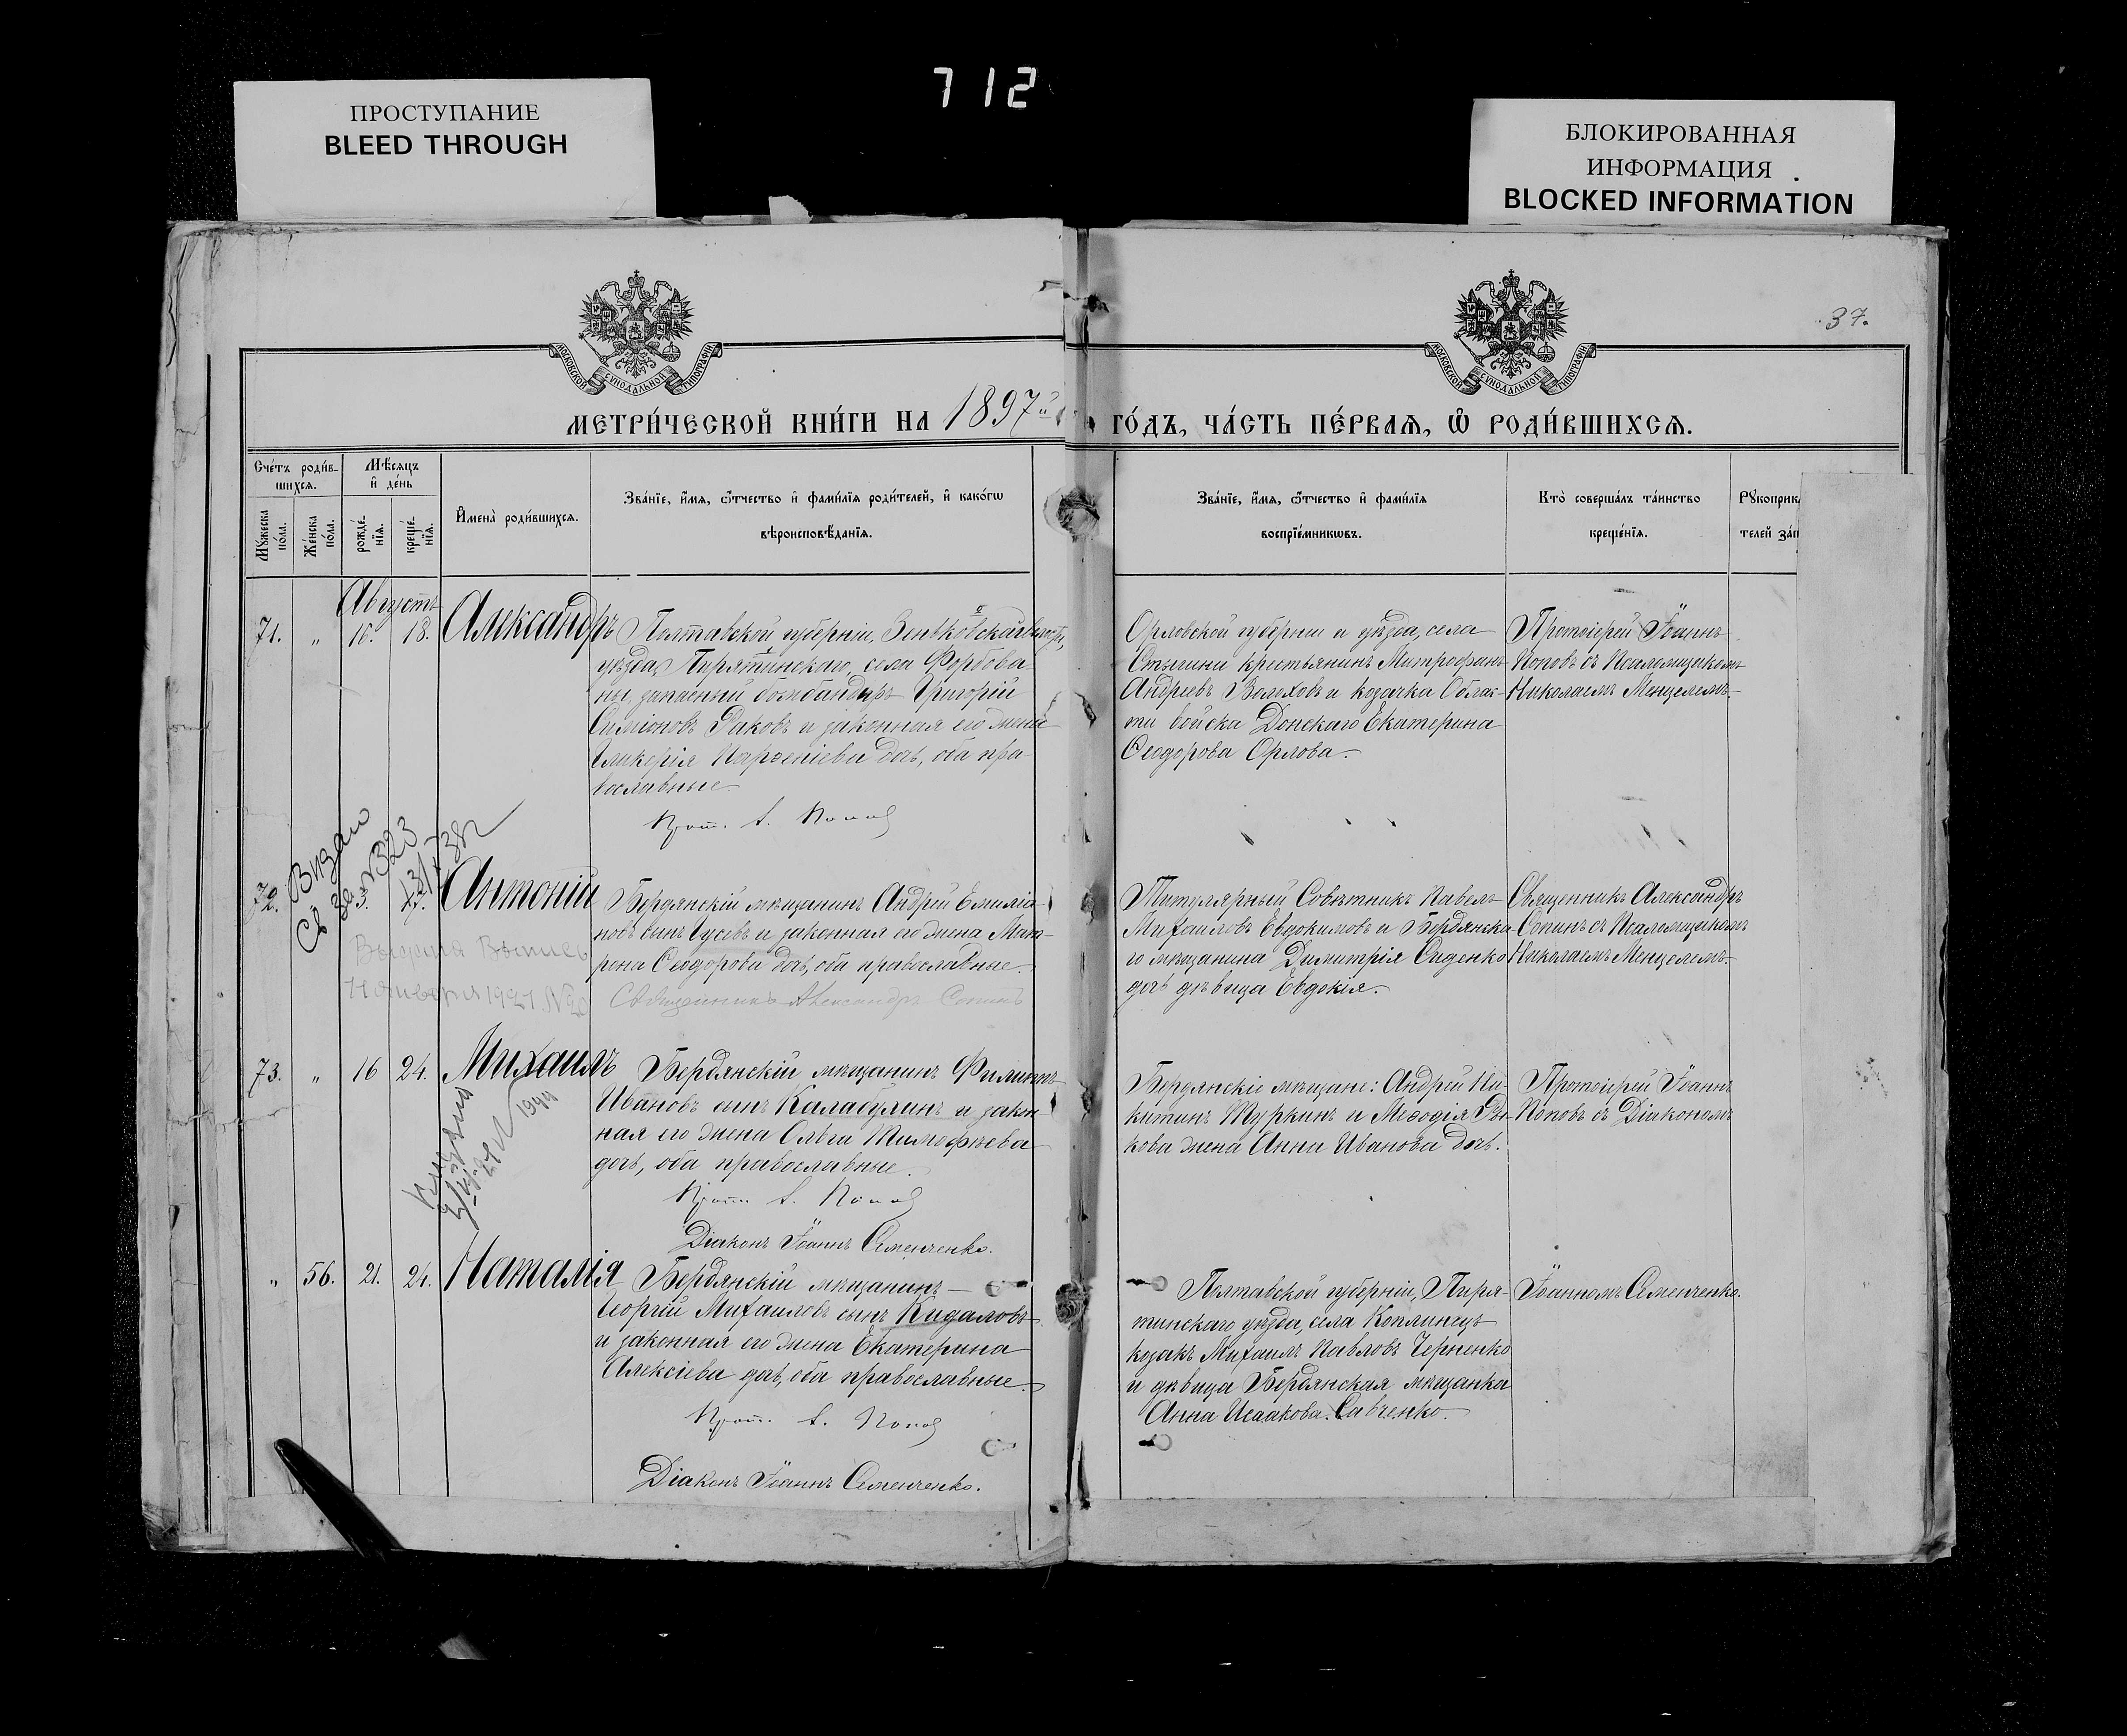 712
ПРОСТУПАНИЕ
BLEED THROUGH
БЛОКИРОВАННАЯ
ИНФОРМАЦИЯ
BLOCKED INFORMATION
37.
МОСКОВСКОЙ СѴНОДАЛЬНОЙ ТИПОГРАФІИ
МОСКОВСКОЙ СѴНОДАЛЬНОЙ ТИПОГРАФІИ
МЕТРИ́ЧЕСКОЙ КНИ́ГИ НА 1897й ГО́ДЪ, ЧА́СТЬ ПЕ́РВАѦ, Ѡ҆ РОДИ́ВШИХСѦ.
Сче́тъ роди́в-
шихсѧ.
Мꙋ́жеска
по́ла.
Же́нска
по́ла.
Мѣ́сѧцъ
и҆ де́нь
рожде́-
нїѧ.
креще́-
нїѧ.
И҆мена̀ роди́вшихсѧ.
Зва́нїе, и҆́мѧ, ѻ҆́тчество и҆ фами́лїѧ роди́телей, и҆ како́гѡ
вѣроисповѣ́данїѧ.
Зва́нїе, и҆́мѧ, ѻ҆́тчество и҆ фами́лїѧ
воспрїе́мникѡвъ.
Кто̀ соверша́лъ та́инство
креще́нїѧ.
Рꙋкоприк
телей за́п
Августъ
71. " 16. 18. Александръ
Полтавской губерніи,
уѣзда, Пирятинскаго, села Фарбова-
ны, запасный бомбандиръ Григорій
Симіоновъ Раковъ и законная его жена
Гликерія Парѳеніева дочь, оба пра-
вославные.
Прот. І. Поповъ
Орловской губерніи и уѣзда, села
крестьянинъ Митрофанъ
Андреевъ Волоховъ и козачка Облас-
ти войска Донскаго Екатерина
Ѳеодорова Орлова.
Протоіерей Іоаннъ
Поповъ съ Псаломщикомъ
Николаемъ Менцелемъ.
72. Антоній
Видано
Св за №323
Бердянскій мѣщанинъ Андрей Емиліа-
новъ сынъ Гусевъ и законная его жена Мат-
рона Ѳеодорова дочь, оба православные.
Священникъ Александръ Сопинъ
Выдана Выпись
11 января 1921 №
Титулярный Совѣтникъ Павелъ
Михаиловъ Евдокимовъ и Бердянска-
го мѣщанина Димитрія Сиденко
дочь дѣвица Евдокія.
Священникъ Александръ
Сопинъ съ Псаломщикомъ
Николаемъ Менцелемъ.
73. " 16 24. Михаилъ
Бердянскій мѣщанинъ Филиппъ
Ивановъ сынъ Калабулинъ и закон
ная его жена Ольга Тимофѣева
дочь, оба православные.
Прот. І. Поповъ
Діаконъ Іоаннъ Семенченко.
Бердянскіе мѣщане: Андрей Ни-
китинъ Туркинъ и Меѳодія Ры-
кова жена Анна Иванова дочь.
Протоіерей Іоаннъ
Поповъ съ Діакономъ
" 56. 21. 24. Наталія
Бердянскій мѣщанинъ
Георгій Михаиловъ сынъ Кидаловъ
и законная его жена Екатерина
Алексіева дочь, оба православные.
Прот. І. Поповъ
Діаконъ Іоаннъ Семенченко.
Полтавской губерніи, Пиря-
тинскаго уѣзда, села Коплинецъ
козакъ Михаилъ Павловъ Черненко
и дѣвица Бердянская мѣщанка
Анна Исаакова Савченко.
Іоанномъ Семенченко.